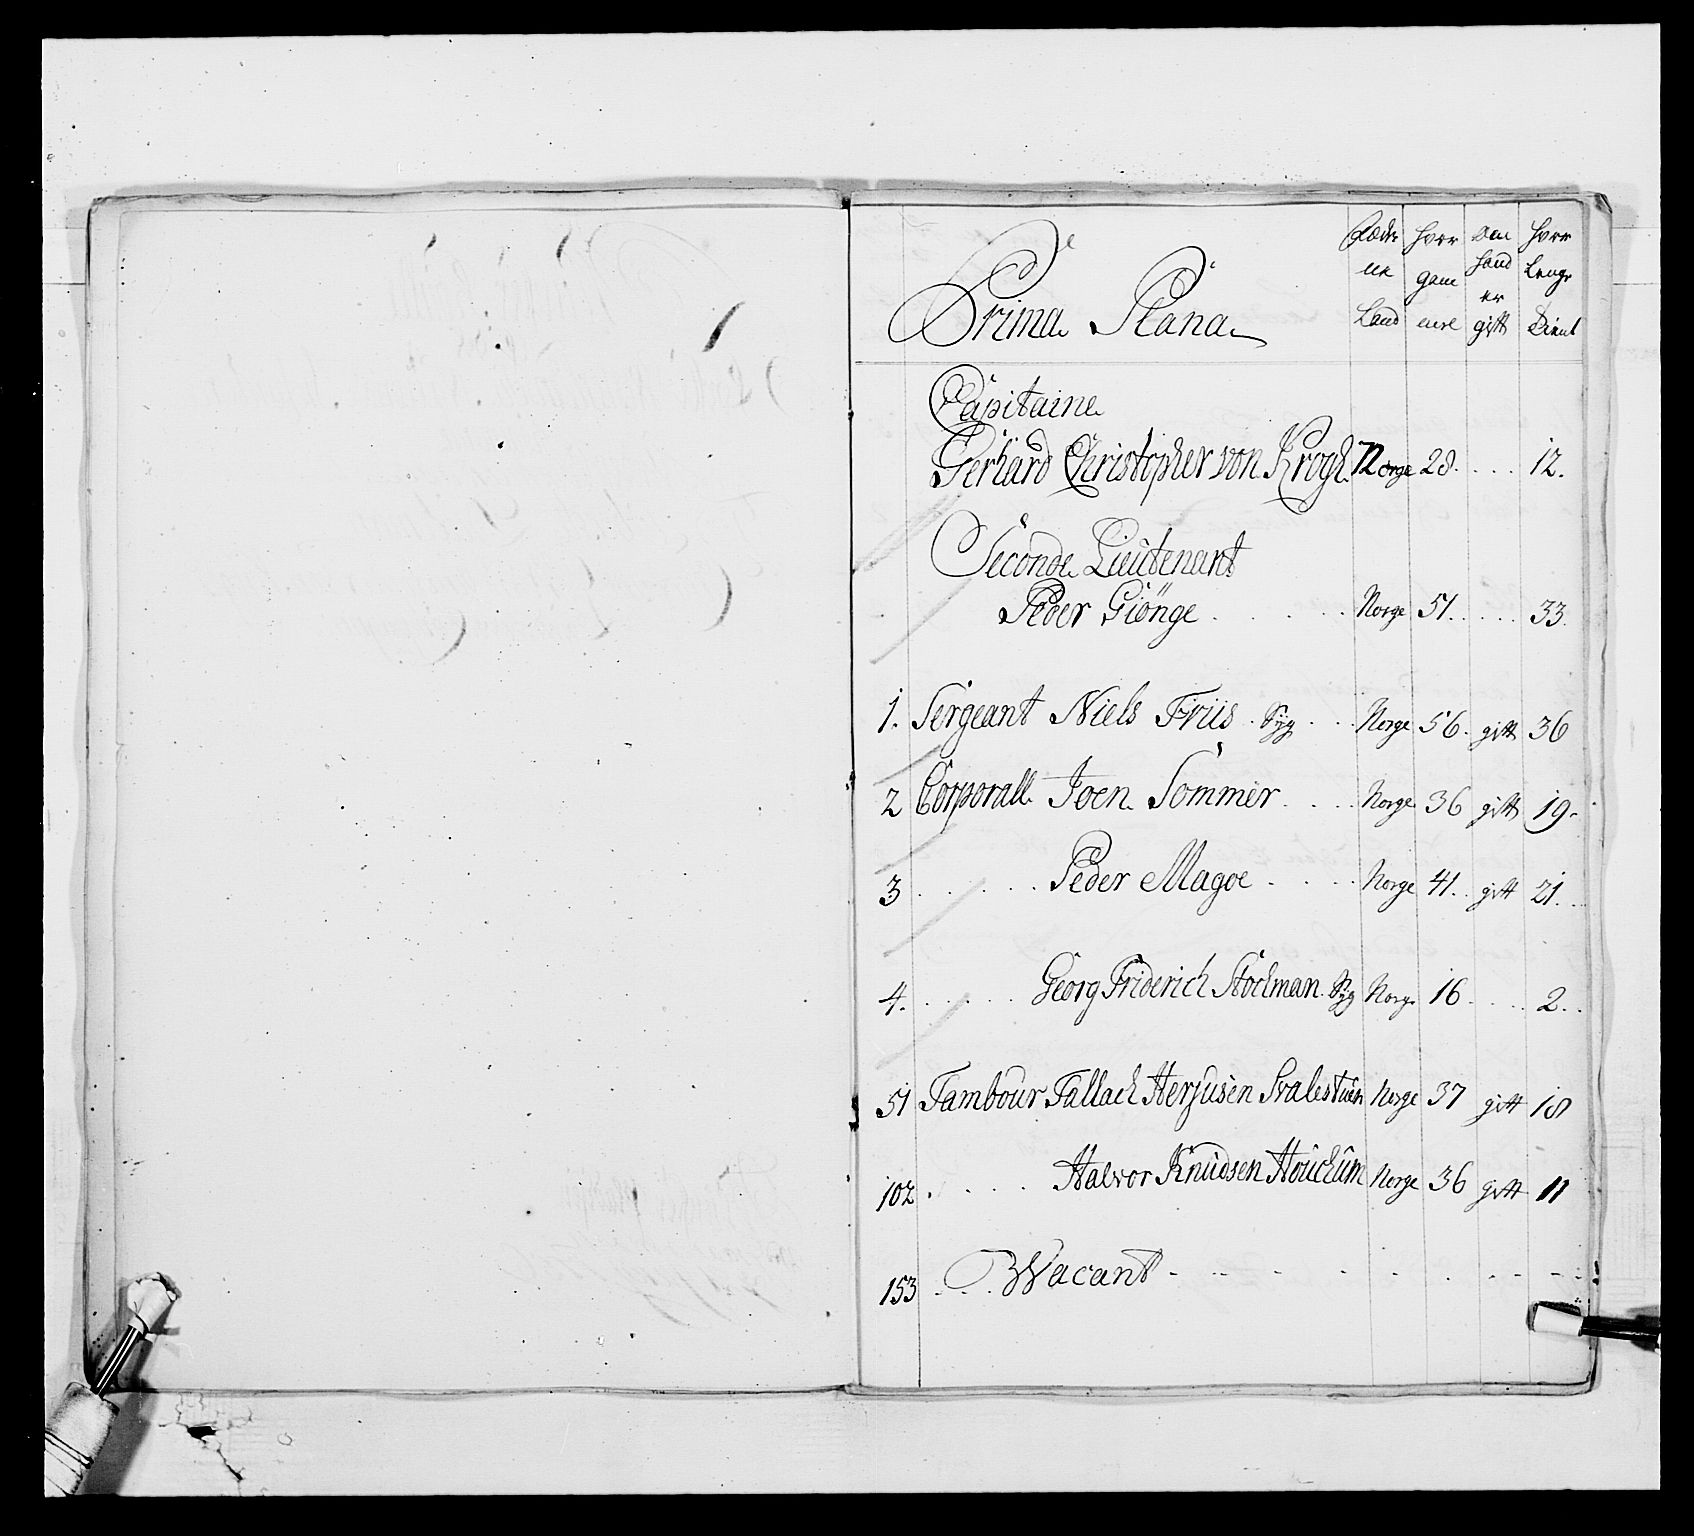 Prima Plana
Fædrene Land
hvor gamel
Om hand er gift
hvor Lenge Dient
Capitaine
Gerhard Christopher von Krogh Norge 28. . . . 12.
Seconde Lieutenant
Peder Giönge . . . . Norge 51. . . . 33.
1. Sergeant Niels Friis . Syg . . . Norge 56. gift 36
2 Corporall Joen Sommer . . . Norge 36 gift 19.
3 . . . . . Peder Magoe . . . . Norge 41. gift 21. .
4. . . . . . Georg Friderich Stockman Syg Norge 16 . . . 2. .
51 Tambour Tallach Herjusen Svalestuen Norge 37 gift 18
102 . . . . Halvor Knudsen Houchum Norge 36 gift 11
153 . . . Wacant - - - - - - - -